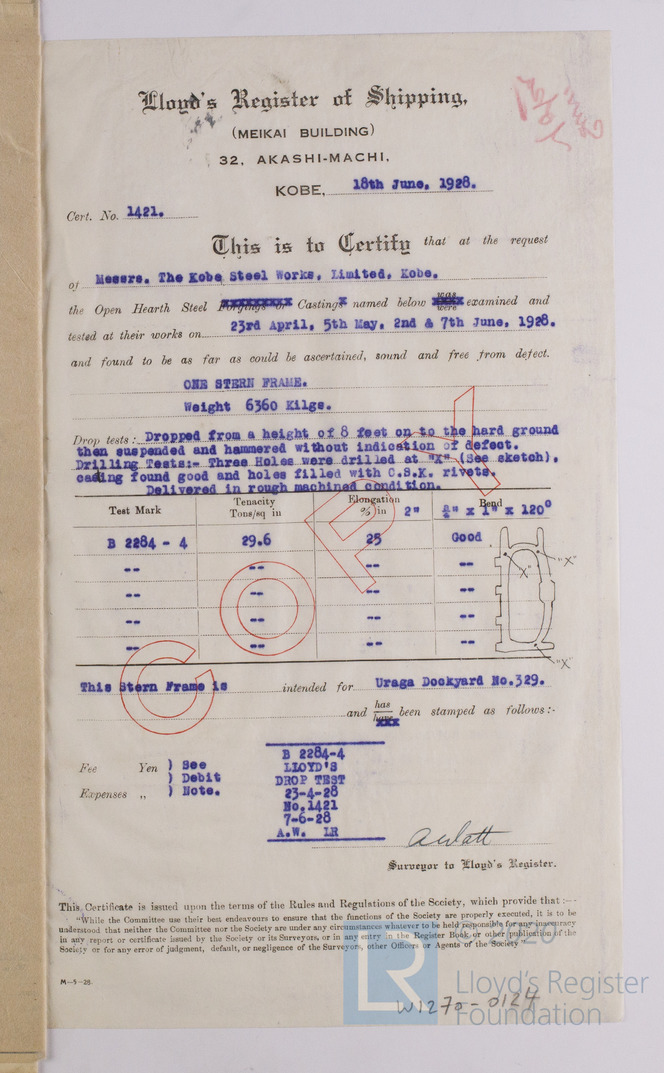 Lloyd's Register of Shipping,
(MEIKAI BUILDING)
32, AKASHI-MACHI,
KOBE, 18th June, 1928.
Cert. No. 1421.
This is to Certify that at the request
of Messrs. The Kobe Steel Works, Limited, Kobe.
the Open Hearth Steel Forgings or Castings named below was were examined and
tested at their works on 23rd April, 5th May, 2nd & 7th June, 1928.
and found to be as far as could be ascertained, sound and free from defect.
ONE STERN FRAME.
Weight 6360 Kilgs.
Drop tests: Dropped from a height of 8 feet on to the hard ground
then suspended and hammered without indication of defect.
Drilling Tests:- Three Holes were drilled at "X" (See sketch),
casing found good and holes filled with C.S.K. rivets.
Delivered in rough machined condition.
Test Mark Tenacity Tons/sq in Elongation % in 2" Bend ¾" x 1" x 120°
B 2284 - 4 29.6 25 Good
-- -- -- --
-- -- -- --
-- -- -- --
-- -- -- --
"X"
X"
"X"
COPY
This Stern Frame is intended for Uraga Dockyard No.329.
and has have been stamped as follows:-
Fee Yen ) See
) Debit
Expenses „ ) Note.
B 2284-4
LLOYD'S
DROP TEST
23-4-28
No.1421
7-6-28
A.W. LR
A Watt
Surveyor to Lloyd's Register.
This Certificate is issued upon the terms of the Rules and Regulations of the Society, which provide that :—-
"While the Committee use their best endeavours to ensure that the functions of the Society are properly executed, it is to be
understood that neither the Committee nor the Society are under any circumstances whatever to be held responsible for any inaccuracy
in any report or certificate issued by the Society or its Surveyors, or in any entry in the Register Book or other publication of the
Society or for any error of judgment, default, or negligence of the Surveyors, other Officers or Agents of the Society"
© 2020
M—5—28.
LR
Lloyd's Register
Foundation
W1270-0124